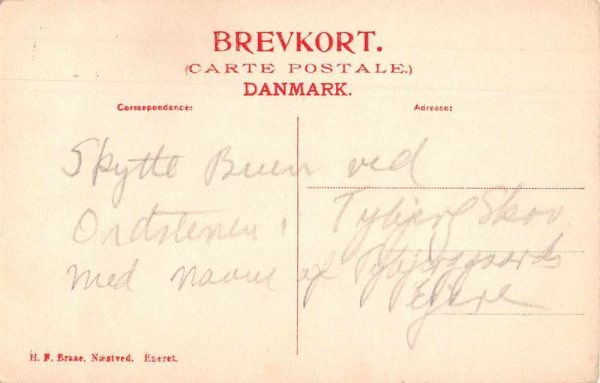 BREVKORT.
(CARTE POSTALE.)
DANMARK.
Correspondance:
Adresse:
Skytte Buen ved
Ordstenen i Tybjerg Skov
med navne af Tybjerggaards
Ejere
H. F. Brane, Næstved. Eneret.